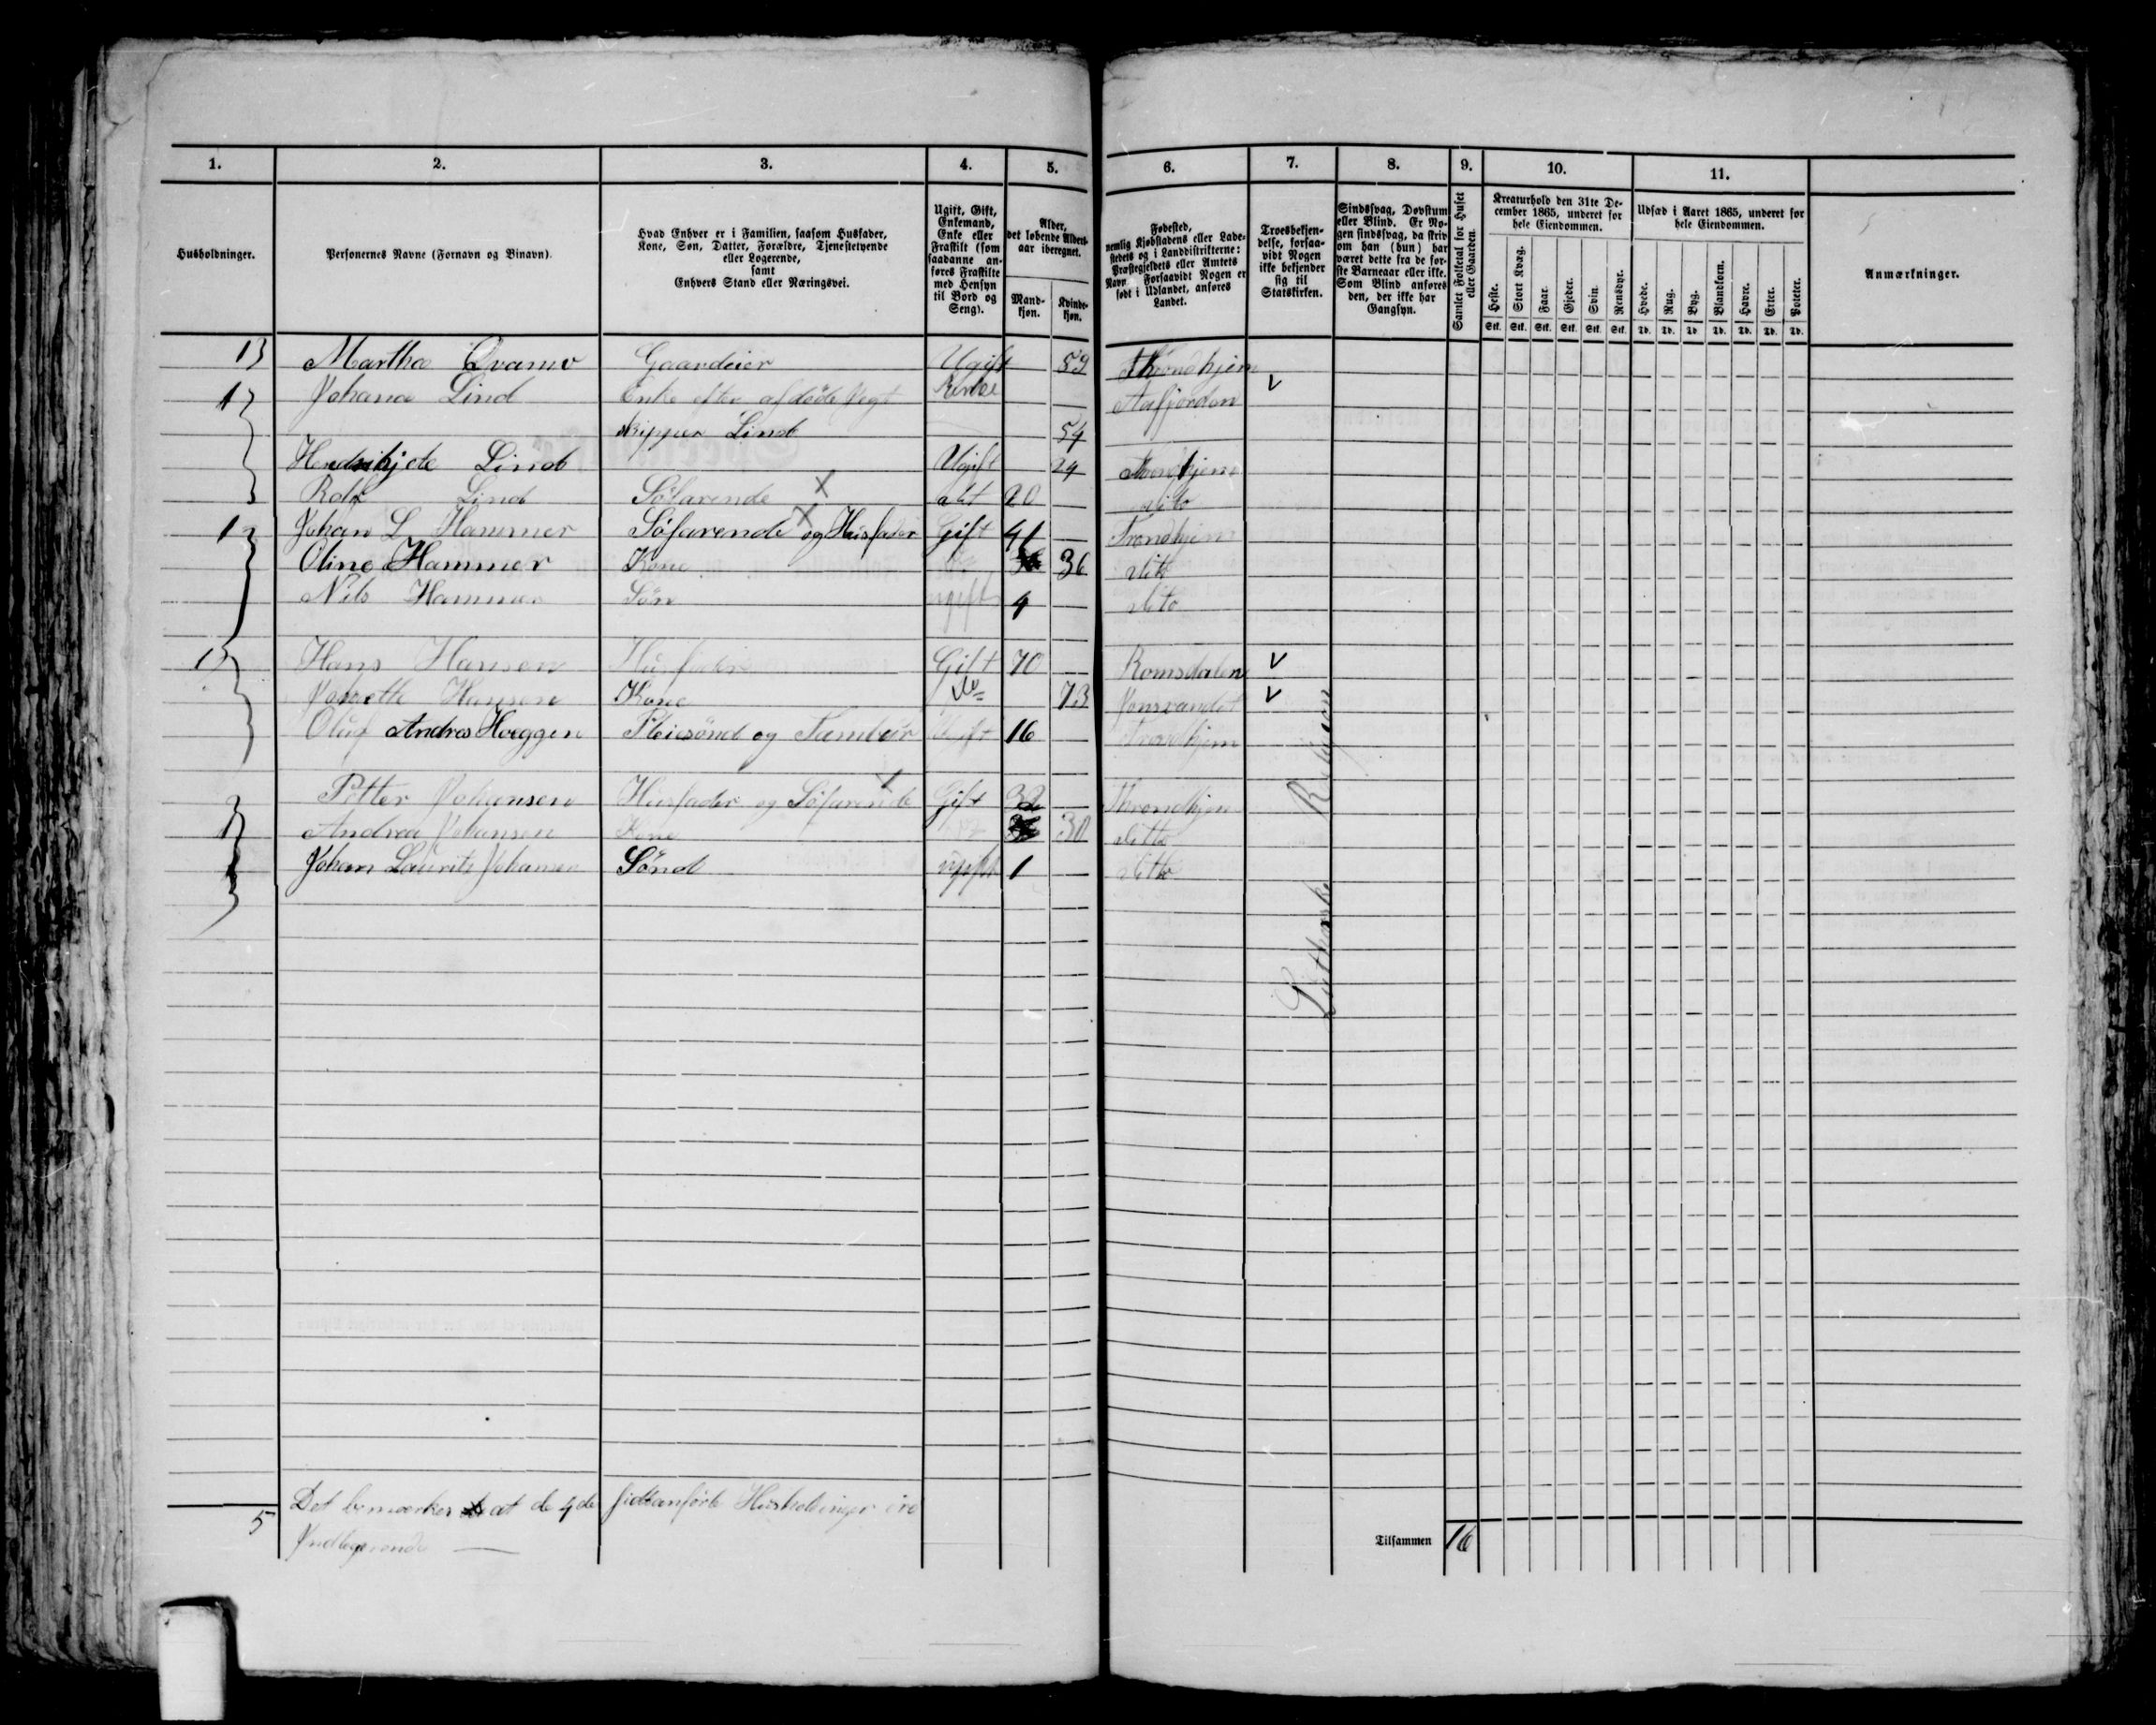 1. 2. 3. 4. 5. 6. 7. 8. 9. 10. 11.
Husholdninger.
Personernes Navne (Fornavn og Binavn).
Hvad Enhver er i Familien, saasom Husfader,
Kone, Søn, Datter, Forældre, Tjenestetyende
eller Logerende,
samt
Enhvers Stand eller Næringsvei.
Ugift, Gift,
Enkemand,
Enke eller
Fraskilt (som
saadanne an-
føres Fraskilte
med Hensyn
til Bord og
Seng).
Alder,
det løbende Alders-
aar iberegnet.
Mand-
kjøn.
Kvinde-
kjøn.
Fødested,
nemlig Kjøbstadens eller Lade-
stedets og i Landdistrikterne:
Præstegjeldets eller Amtets
Navn. Forsaavidt Nogen er
født i Udlandet, anføres
Landet.
Troesbekjen-
delse, forsaa-
vidt Nogen
ikke bekjender
sig til
Statskirken.
Sindssvag, Døvstum
eller Blind. Er No-
gen sindssvag, da skriv
om han (hun) har
været dette fra de før-
ste Barneaar eller ikke.
Som Blind anføres
den, der ikke har
Gangsyn.
Samlet Folketal for Huset
eller Gaarden.
Kreaturhold den 31te De-
cember 1865, underet for
hele Eiendommen.
Heste. Stort Kvæg. Faar. Gjeder. Svin. Rensdyr.
Stk. Stk. Stk. Stk. Stk. Stk.
Udsæd i Aaret 1865, underet for
hele Eiendommen.
Hvede. Rug. Byg. Blandkorn. Havre. Erter. Poteter.
Td. Td. Td. Td. Td. Td. Td.
Anmærkninger.
1 Martha Gaardeier Ugift 59 Throndhjem
1 Johana Lind Enke efter afdöde Enke Aafjorden
skipper Lind 54
Lind Ugift 24 Trondhjem
Rolf Lind Söfarende X dit 20 dito
1 Johan L Hammer Söfarende X og Husfader Gift 41 Trondhjem
Oline Hammer Kone 36 dito
Nils Hammer Sön ugift 4 dito
1 Hans Hansen Husfader Gift 70 Romsdalen
Hansen Kone do 73 Jonsvandet
Oluf Andreas Hoeggen Pleiesönd og Tambur Ugift 16 Trondhjem
Petter Johansen Husfader og Söfarende Gift 32 Throndhjem
1 Andrea Johansen Kone 30 ditto
Johan Laurits Johansen Sönd ugift 1 ditto
Lutherske Religion
5
Det bemærkes at de 4de sidstanförte Husholdninger ere
Indlogerende —
Tilsammen 16